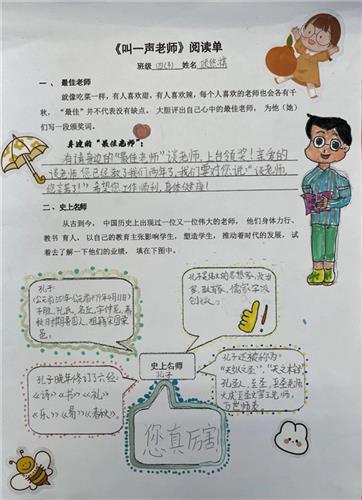 《叫一声老师》阅读单
班级 四(4) 姓名
一、 最佳老师
就像吃菜一样，有人喜欢甜，有人喜欢辣，每个人喜欢的老师也会各有千
秋，“最佳” 并不代表没有缺点。 大胆评出自己心中的最佳老师， 为他（她）
们写一段颁奖词。
身边的“最佳老师”：
有请身边的“最佳老师”谈老师上台领奖！亲爱的
谈老师您已经教了我们两年多，我们要对您说：“谈老师
您辛苦了！”希望您工作顺利，身体健康！
二、史上名师
从古到今， 中国历史上出现过一位又一位伟大的老师， 他们身体力行、
教书育人， 以自己的教育主张影响学生， 塑造学生， 推动着时代的发展， 试
着去了解一下他们的业绩， 填在下图中。
孔子
子姓，孔氏，名丘，字仲尼，春
秋
孔子是伟大的思想家、政治
家、教育家，儒家学派
创始人。
史上名师
孔子
孔子晚年修订了六经：
《诗》《书》《礼》
《乐》《易》《春秋》。
孔子还被称为：
“天纵之圣”、“天之木铎”
孔圣人、至圣、至圣先师、
万世师表。
您真厉害！